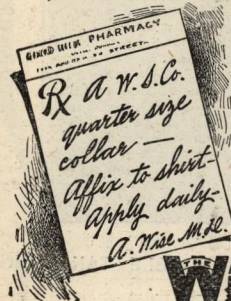 PHARMACY
STREET.
Rx A W. S. Co.
quarter size
collar —
Affix to shirt-
Apply daily-
A. Wise M.D.
THE
W